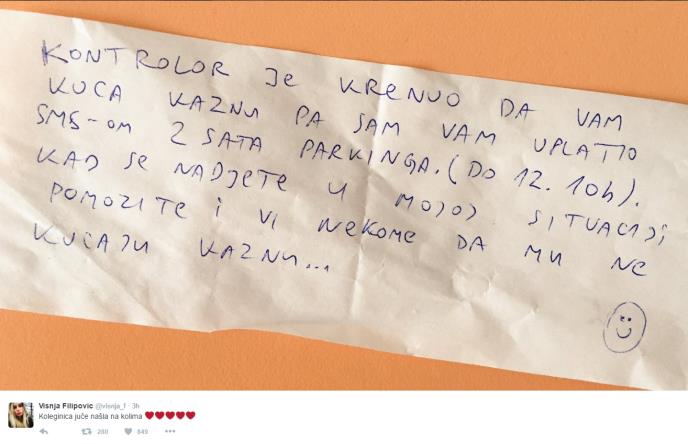 KONTROLOR JE KRENUO DA VAM
KUCA KAZNU PA SAM VAM UPLATIO
SMS-OM 2 SATA PARKINGA. (DO 12.10h).
KAD SE NADJETE U MOJOJ SITUACIJI
POMOZITE I VI NEKOME DA MU NE
KUCAJU KAZNU...
Visnja Filipovic @visnja_f · 3h
Koleginica juče našla na kolima ❤❤❤❤❤
280 849